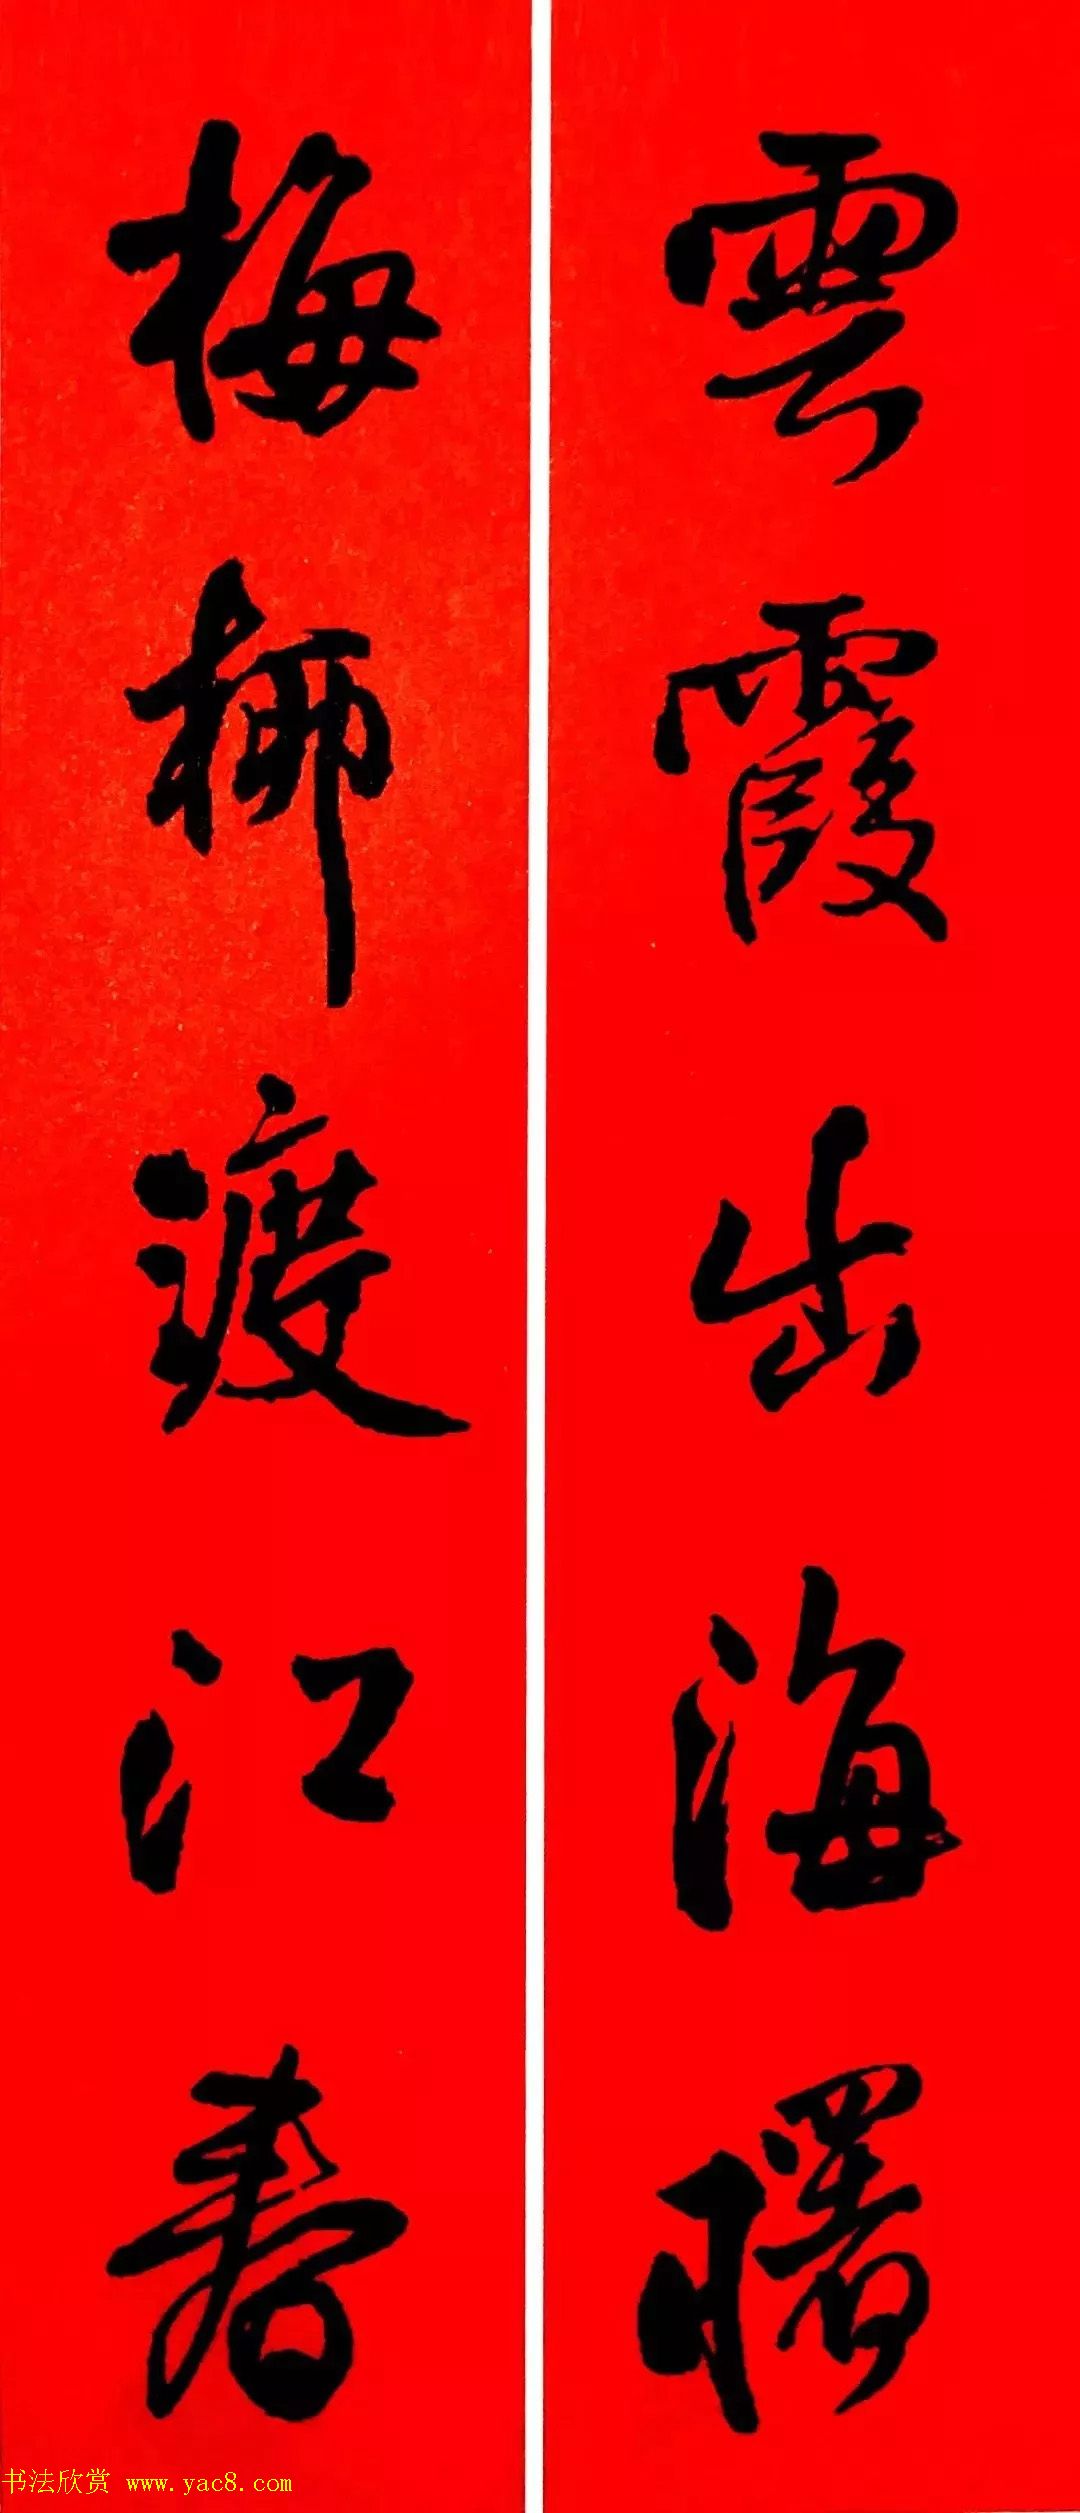 雲霞出海曙
梅柳渡江春
书法欣赏 www.yac8.com